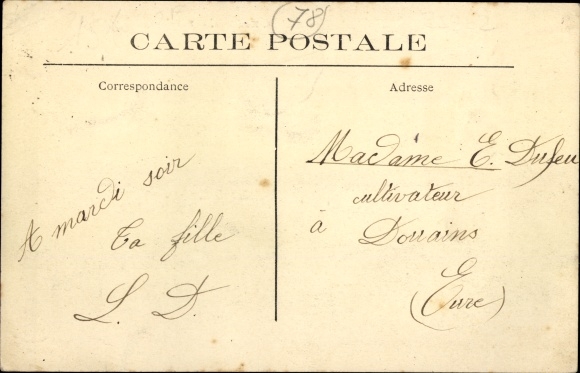 78
CARTE POSTALE
Correspondance
Adresse
A mardi soir
Ta fille
L. D.
Madame E. Dufeu
cultivateur
à Douains
(Eure)